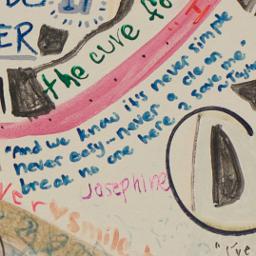 ER
the cure fo
"And we know it's never simple
never easy...never a clean
break no one here 2 save me"
Josephine
very ♥ smile
"I've